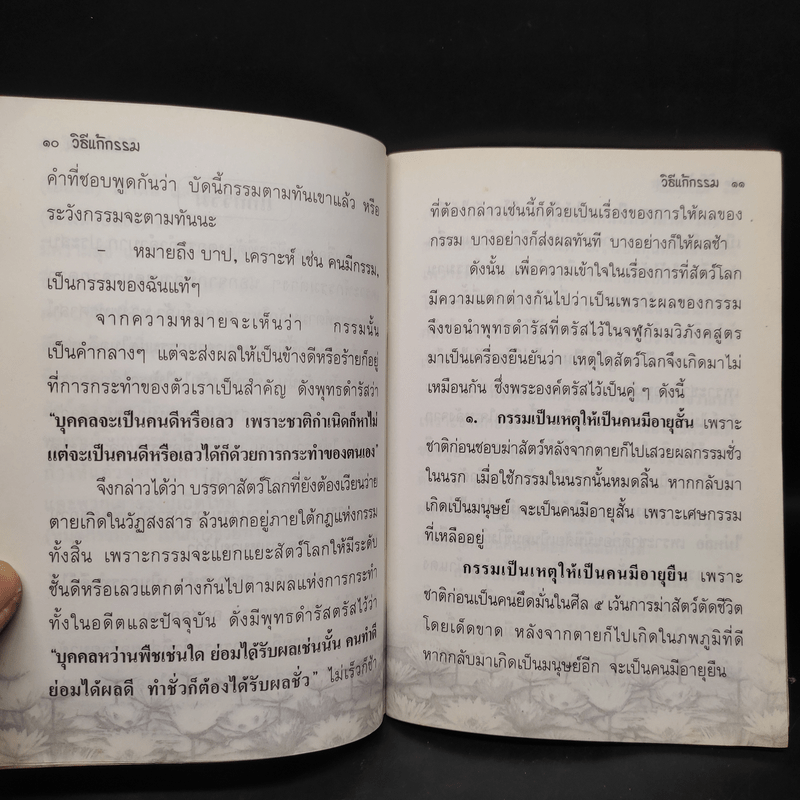 ๑๐ วิธีแก้กรรม
คำที่ชอบพูดกันว่า บัดนี้กรรมตามทันเขาแล้ว หรือ
ระวังกรรมจะตามทันนะ
– หมายถึง บาป, เคราะห์ เช่น คนมีกรรม,
เป็นกรรมของฉันแท้ๆ
จากความหมายจะเห็นว่า กรรมนั้น
เป็นคำกลางๆ แต่จะส่งผลให้เป็นข้างดีหรือร้ายก็อยู่
ที่การกระทำของตัวเราเป็นสำคัญ ดังพุทธดำรัสว่า
"บุคคลจะเป็นคนดีหรือเลว เพราะชาติกำเนิดก็หาไม่
แต่จะเป็นคนดีหรือเลวได้ก็ด้วยการกระทำของตนเอง"
จึงกล่าวได้ว่า บรรดาสัตว์โลกที่ยังต้องเวียนว่าย
ตายเกิดในวัฏสงสาร ล้วนตกอยู่ภายใต้กฎแห่งกรรม
ทั้งสิ้น เพราะกรรมจะแยกแยะสัตว์โลกให้มีระดับ
ชั้นดีหรือเลวแตกต่างกันไปตามผลแห่งการกระทำ
ทั้งในอดีตและปัจจุบัน ดังมีพุทธดำรัสตรัสไว้ว่า
"บุคคลหว่านพืชเช่นใด ย่อมได้รับผลเช่นนั้น คนทำดี
ย่อมได้ผลดี ทำชั่วก็ต้องได้รับผลชั่ว" ไม่เร็วก็ช้า
วิธีแก้กรรม ๑๑
ที่ต้องกล่าวเช่นนี้ก็ด้วยเป็นเรื่องของการให้ผลของ
กรรม บางอย่างก็ส่งผลทันที บางอย่างก็ให้ผลช้า
ดังนั้น เพื่อความเข้าใจในเรื่องการที่สัตว์โลก
มีความแตกต่างกันไปว่าเป็นเพราะผลของกรรม
จึงขอนำพุทธดำรัสที่ตรัสไว้ในจูฬกัมมวิภังคสูตร
มาเป็นเครื่องยืนยันว่า เหตุใดสัตว์โลกจึงเกิดมาไม่
เหมือนกัน ซึ่งพระองค์ตรัสไว้เป็นคู่ ๆ ดังนี้
๑. กรรมเป็นเหตุให้เป็นคนมีอายุสั้น เพราะ
ชาติก่อนชอบฆ่าสัตว์หลังจากตายก็ไปเสวยผลกรรมชั่ว
ในนรก เมื่อใช้กรรมในนรกนั้นหมดสิ้น หากกลับมา
เกิดเป็นมนุษย์ จะเป็นคนมีอายุสั้น เพราะเศษกรรม
ที่เหลืออยู่
กรรมเป็นเหตุให้เป็นคนมีอายุยืน เพราะ
ชาติก่อนเป็นคนยึดมั่นในศีล ๕ เว้นการฆ่าสัตว์ตัดชีวิต
โดยเด็ดขาด หลังจากตายก็ไปเกิดในภพภูมิที่ดี
หากกลับมาเกิดเป็นมนุษย์อีก จะเป็นคนมีอายุยืน